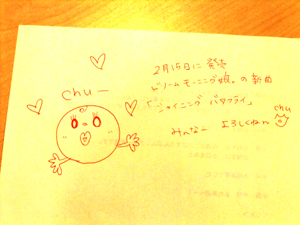 chu—
2月15日に 発売
ドリーム モーニング娘。の新曲
「シャイニング バタフライ」
みんなー よろしくねん
chu